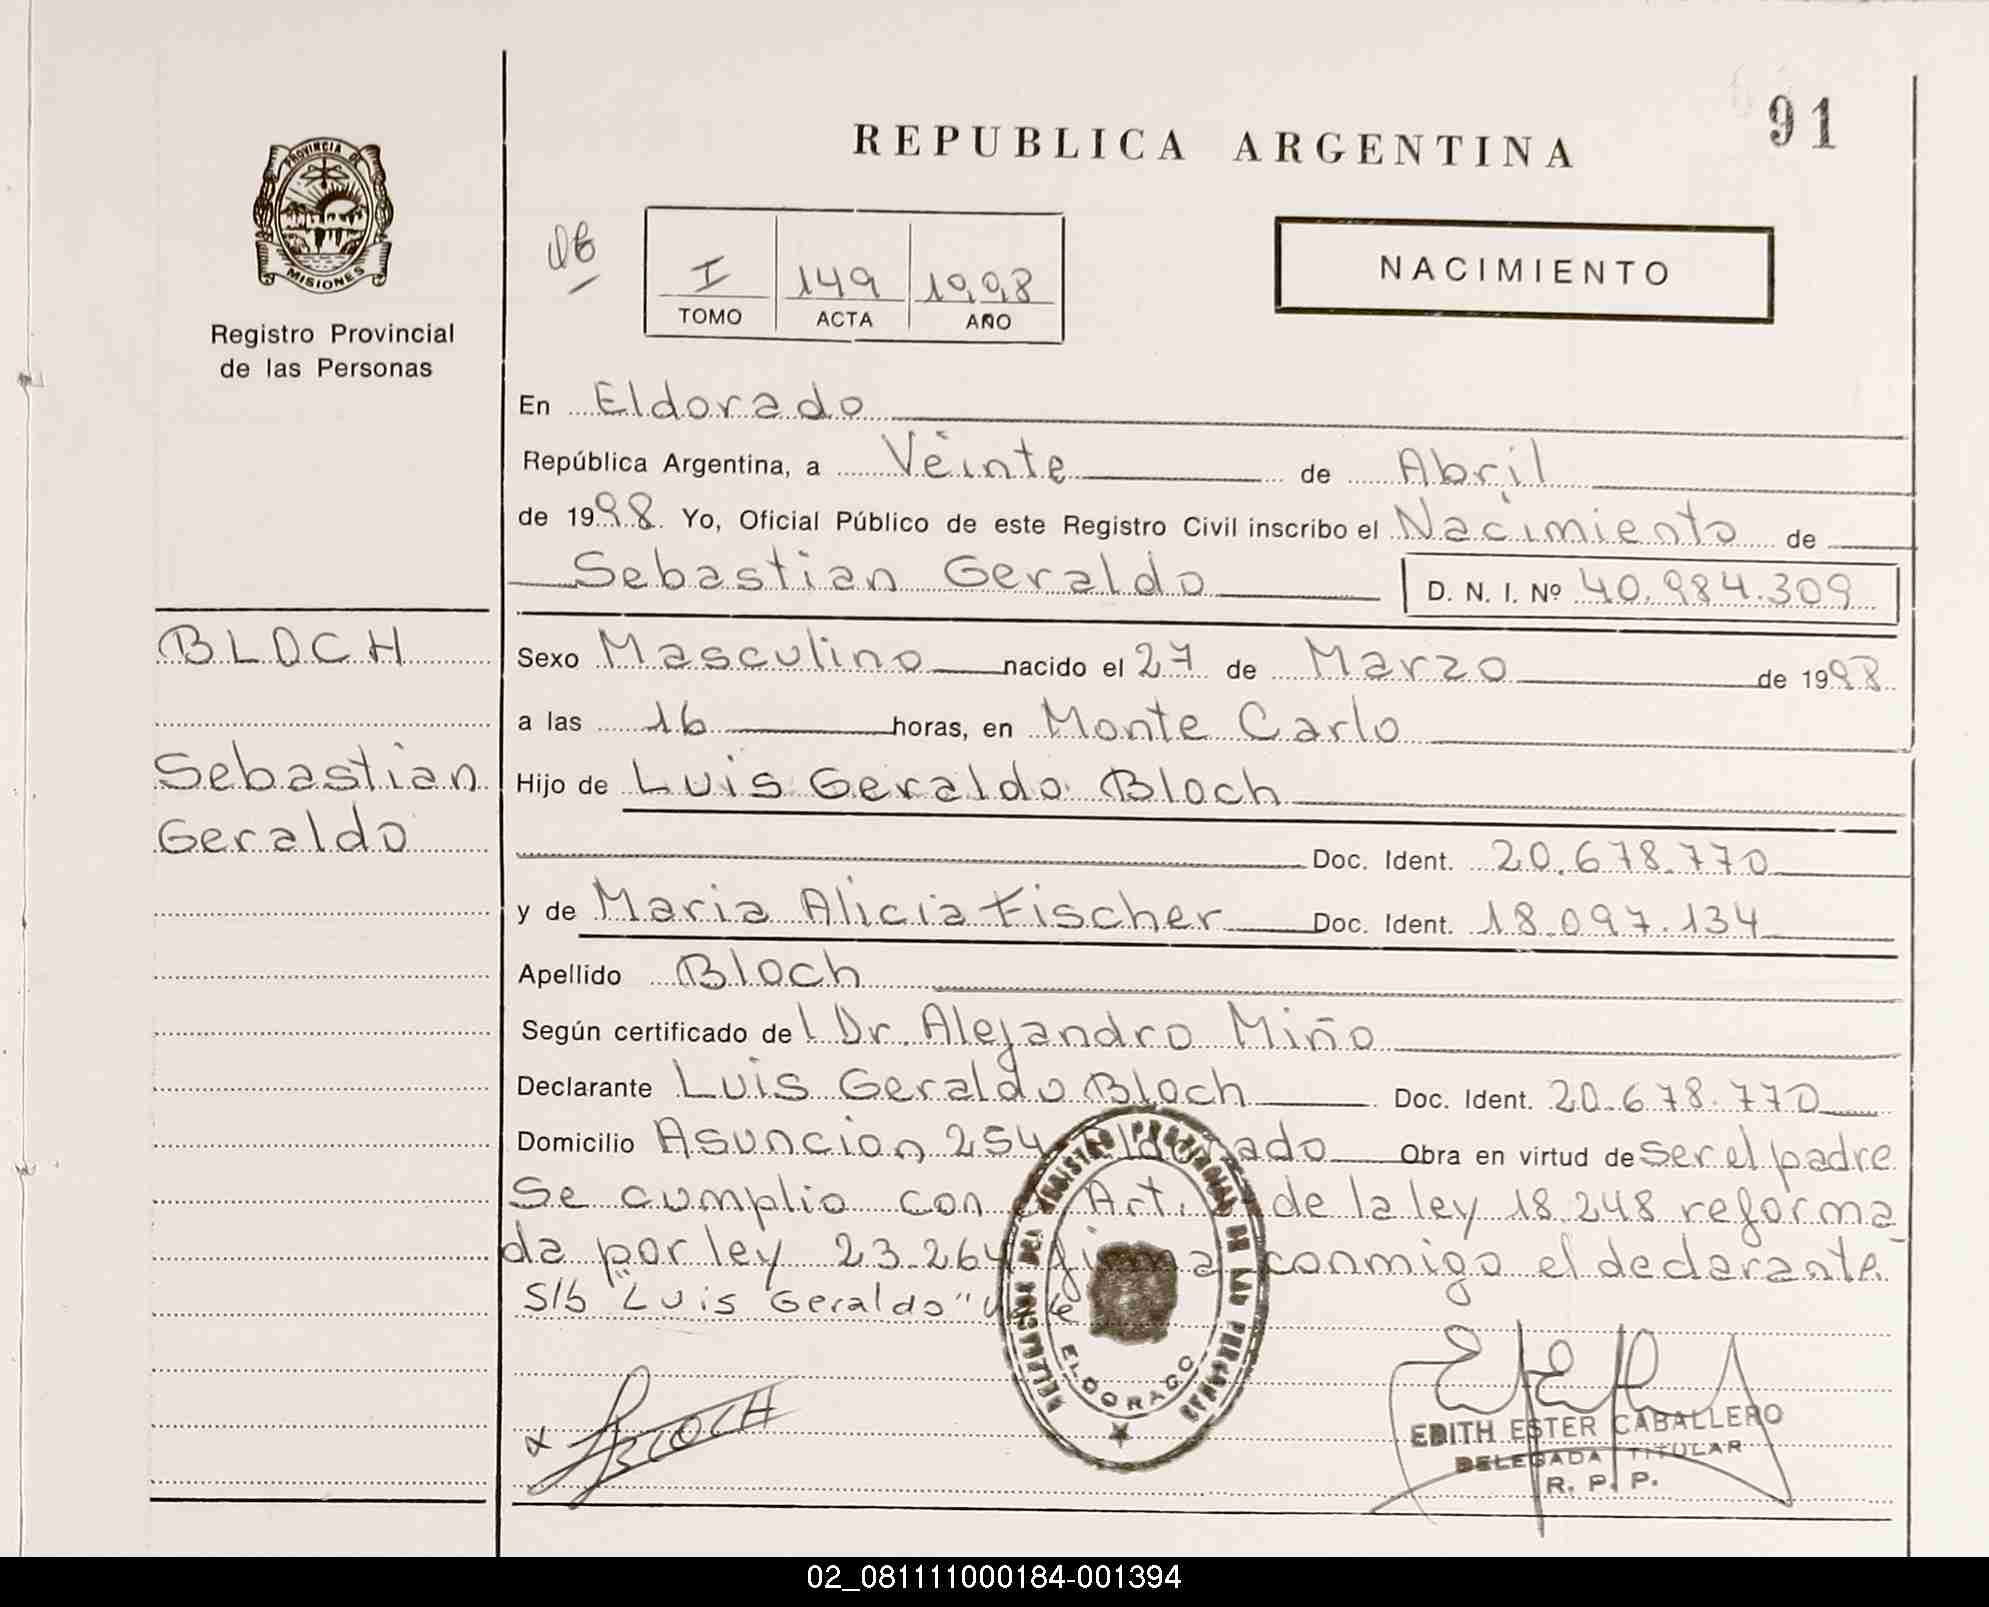 91
REPUBLICA ARGENTINA
PROVINCIA DE
MISIONES
Registro Provincial
de las Personas
I 149 1998
TOMO ACTA AÑO
NACIMIENTO
En Eldorado
República Argentina, a Veinte de Abril
de 1998. Yo, Oficial Público de este Registro Civil inscribo el Nacimiento de
Sebastian Geraldo D. N. I. Nº 40.984.309
BLOCH
Sebastian
Geraldo
Sexo Masculino nacido el 27 de Marzo de 1998
a las 16 horas, en Monte Carlo
Hijo de Luis Geraldo Bloch
Doc. Ident. 20.678.770
y de Maria Alicia Fischer Doc. Ident. 18.097.134
Apellido Bloch
Según certificado del Dr. Alejandro Miño
Declarante Luis Geraldo Bloch Doc. Ident. 20.678.770
Domicilio Asuncion 254 Eldorado Obra en virtud de ser el padre
Se cumplio con Art. de la ley 18.248 reforma
da por ley 23.264 firma conmigo el declarante
S/b "Luis Geraldo" Vale
DELEGACION DEL REGISTRO PROVINCIAL DE LAS PERSONAS
ELDORADO
BLOCH
EDITH ESTER CABALLERO
DELEGADA TITULAR
R. P. P.
02_081111000184-001394